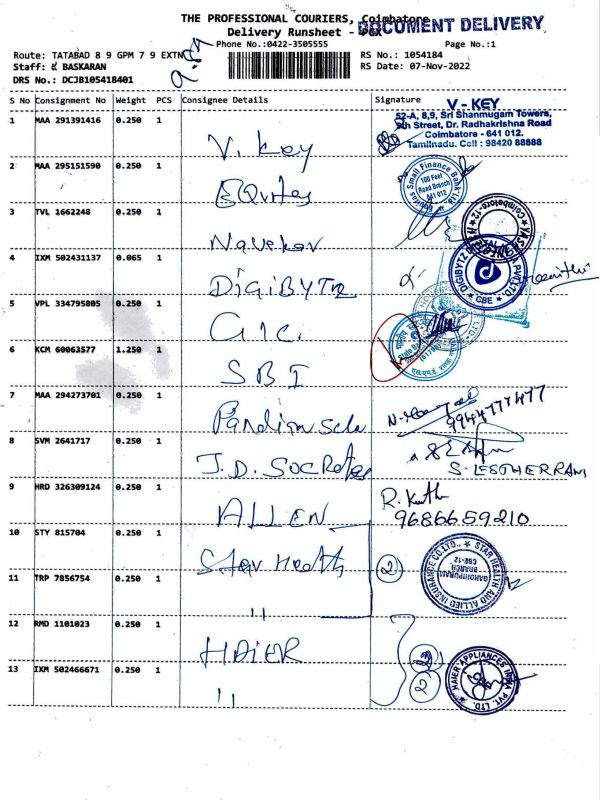 THE PROFESSIONAL COURIERS, Coimbatore
DOCUMENT DELIVERY
Delivery Runsheet - PGX
Phone No.:0422-3505555
Page No.:1
Route: TATABAD 8 9 GPM 7 9 EXTN
RS No.: 1054184
Staff: BASKARAN
RS Date: 07-Nov-2022
DRS No.: DCJB105418401
S No Consignment No Weight PCS Consignee Details Signature
V - KEY
52-A, 8,9, Sri Shanmugam Towers,
9th Street, Dr. Radhakrishna Road
Coimbatore - 641 012.
Tamilnadu. Cell : 98420 88888
1 MAA 291391416 0.250 1 V. Key
2 MAA 295151590 0.250 1 EQuitas
Small Finance Bank Ltd
100 Feet
Road Branch
641 012
3 TVL 1662248 0.250 1
Coimbatore-12
4 IXM 502431137 0.065 1 DigiBYTz
DIGIBYTZ DIGITAL PVT LTD
CBE
5 VPL 334795805 0.250 1
6 KCM 60063577 1.250 1 SBI
7 MAA 294273701 0.250 1
9944777477
8 SVM 2641717 0.250 1 J.D. Socrates
S. LESTHERRAM
9 HRD 326309124 0.250 1 ALLEN
9686659210
10 STY 815704 0.250 1 Star Health
2
STAR HEALTH AND ALLIED INSURANCE CO.LTD.,
GANDHIPURAM
BRANCH
CBE-12
11 TRP 7856754 0.250 1 "
12 RMD 1101023 0.250 1 HAIER
13 IXM 502466671 0.250 1 "
2
HAIER APPLIANCES INDIA PVT. LTD.